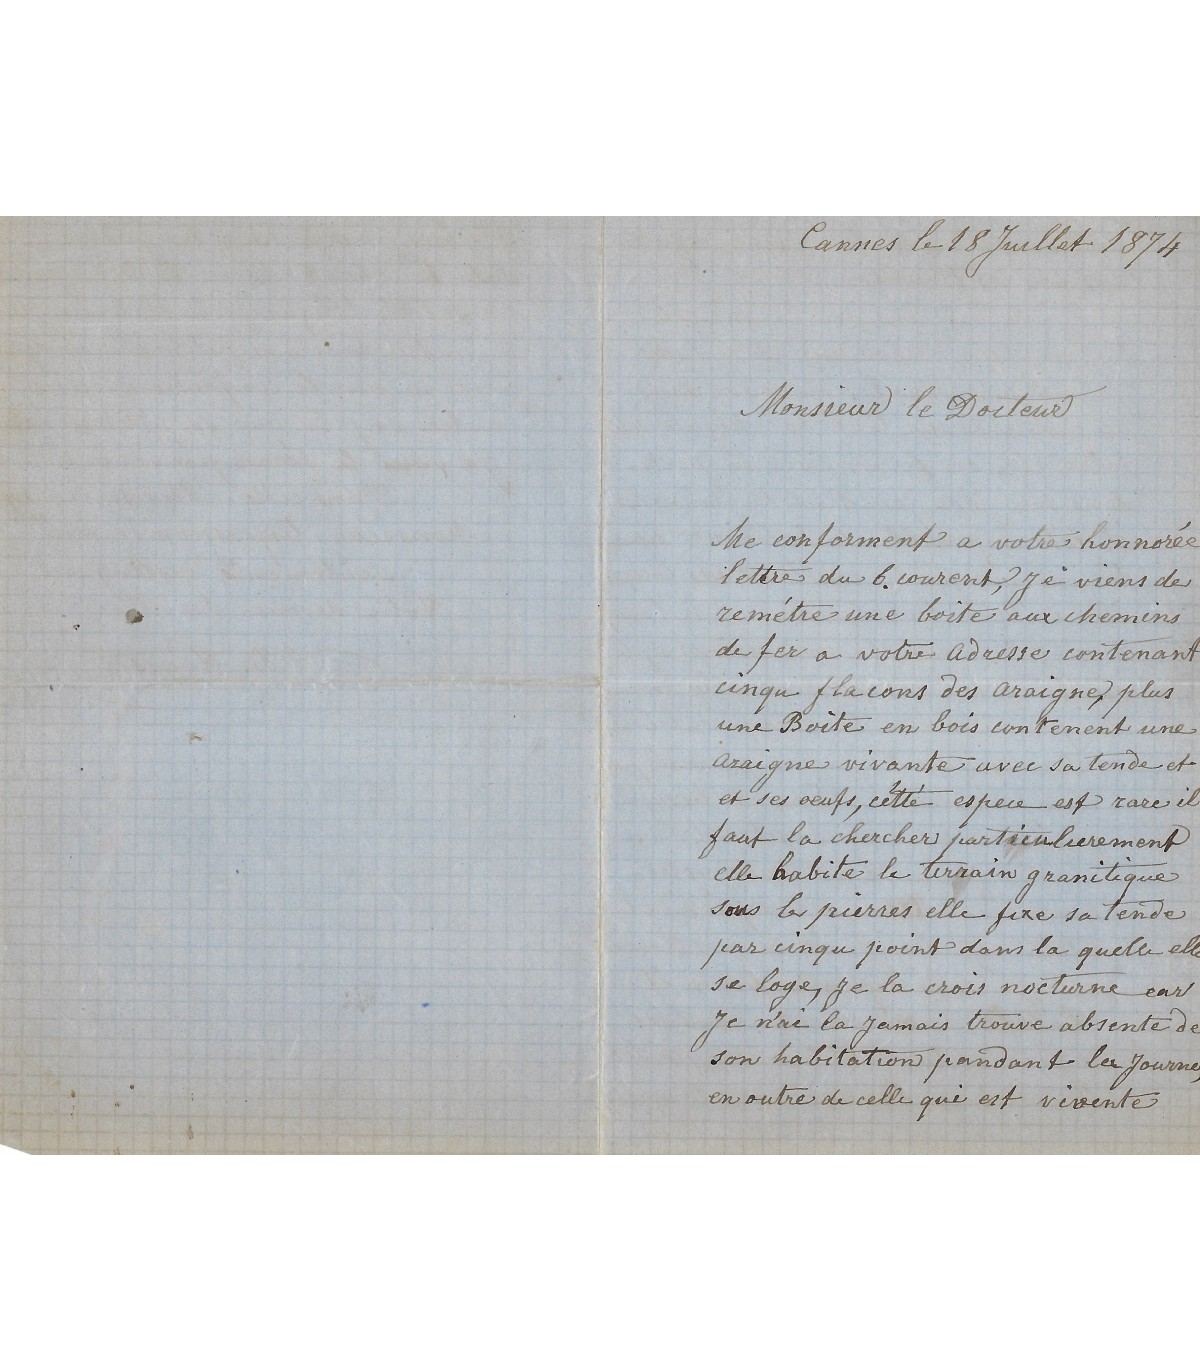 Cannes le 18 Juillet 1874
Monsieur le Docteur
Me conforment a votre honnorée
lettre du 6. courent, Je viens de
remétre une boite aux chemins
de fer a votre adresse contenant
cinqu flacons des araigne, plus
une Boite en bois contenent une
araigne vivante avec sa tende et
et ses oeufs, cétté espece est rare il
faut la chercher particulierement
elle habite le terrain granitique
sous les pierres elle fixe sa tende
par cinqu point dans la quelle elle
se loge, Je la crois nocturne car
Je n'ai la Jamais trouve absente de
son habitation pandant la Journe,
en outre de celle qui est vivente